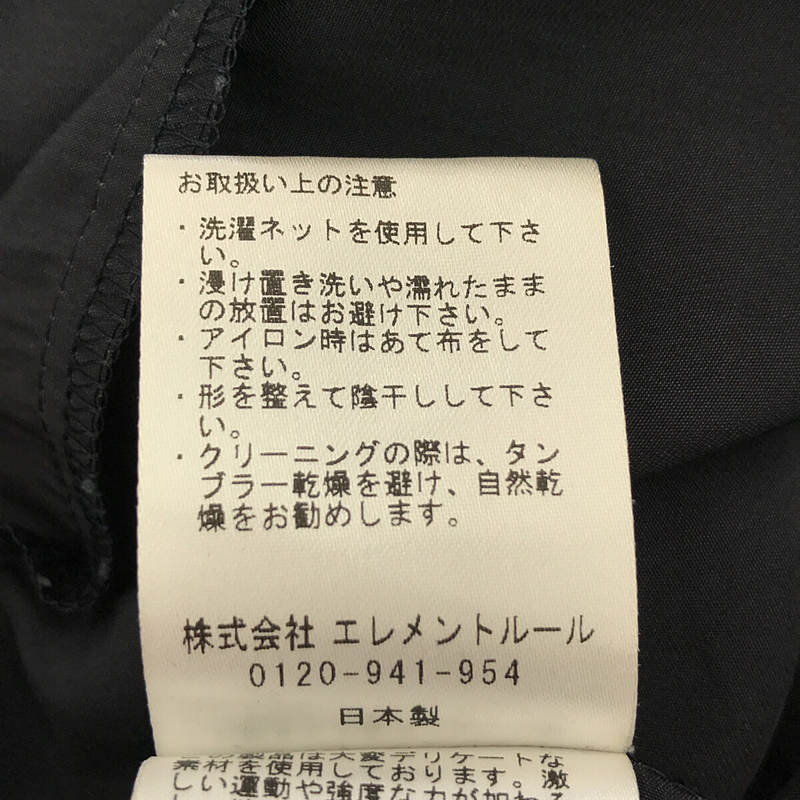 お取扱い上の注意
・洗濯ネットを使用して下さ
い。
・浸け置き洗いや濡れたまま
の放置はお避け下さい。
・アイロン時はあて布をして
下さい。
・形を整えて陰干しして下さ
い。
・クリーニングの際は、タン
ブラー乾燥を避け、自然乾
燥をお勧めします。
株式会社 エレメントルール
0120-941-954
日本製
製品は大変デリケートな
素材を使用しております。激
しい運動や強度な力が加わる